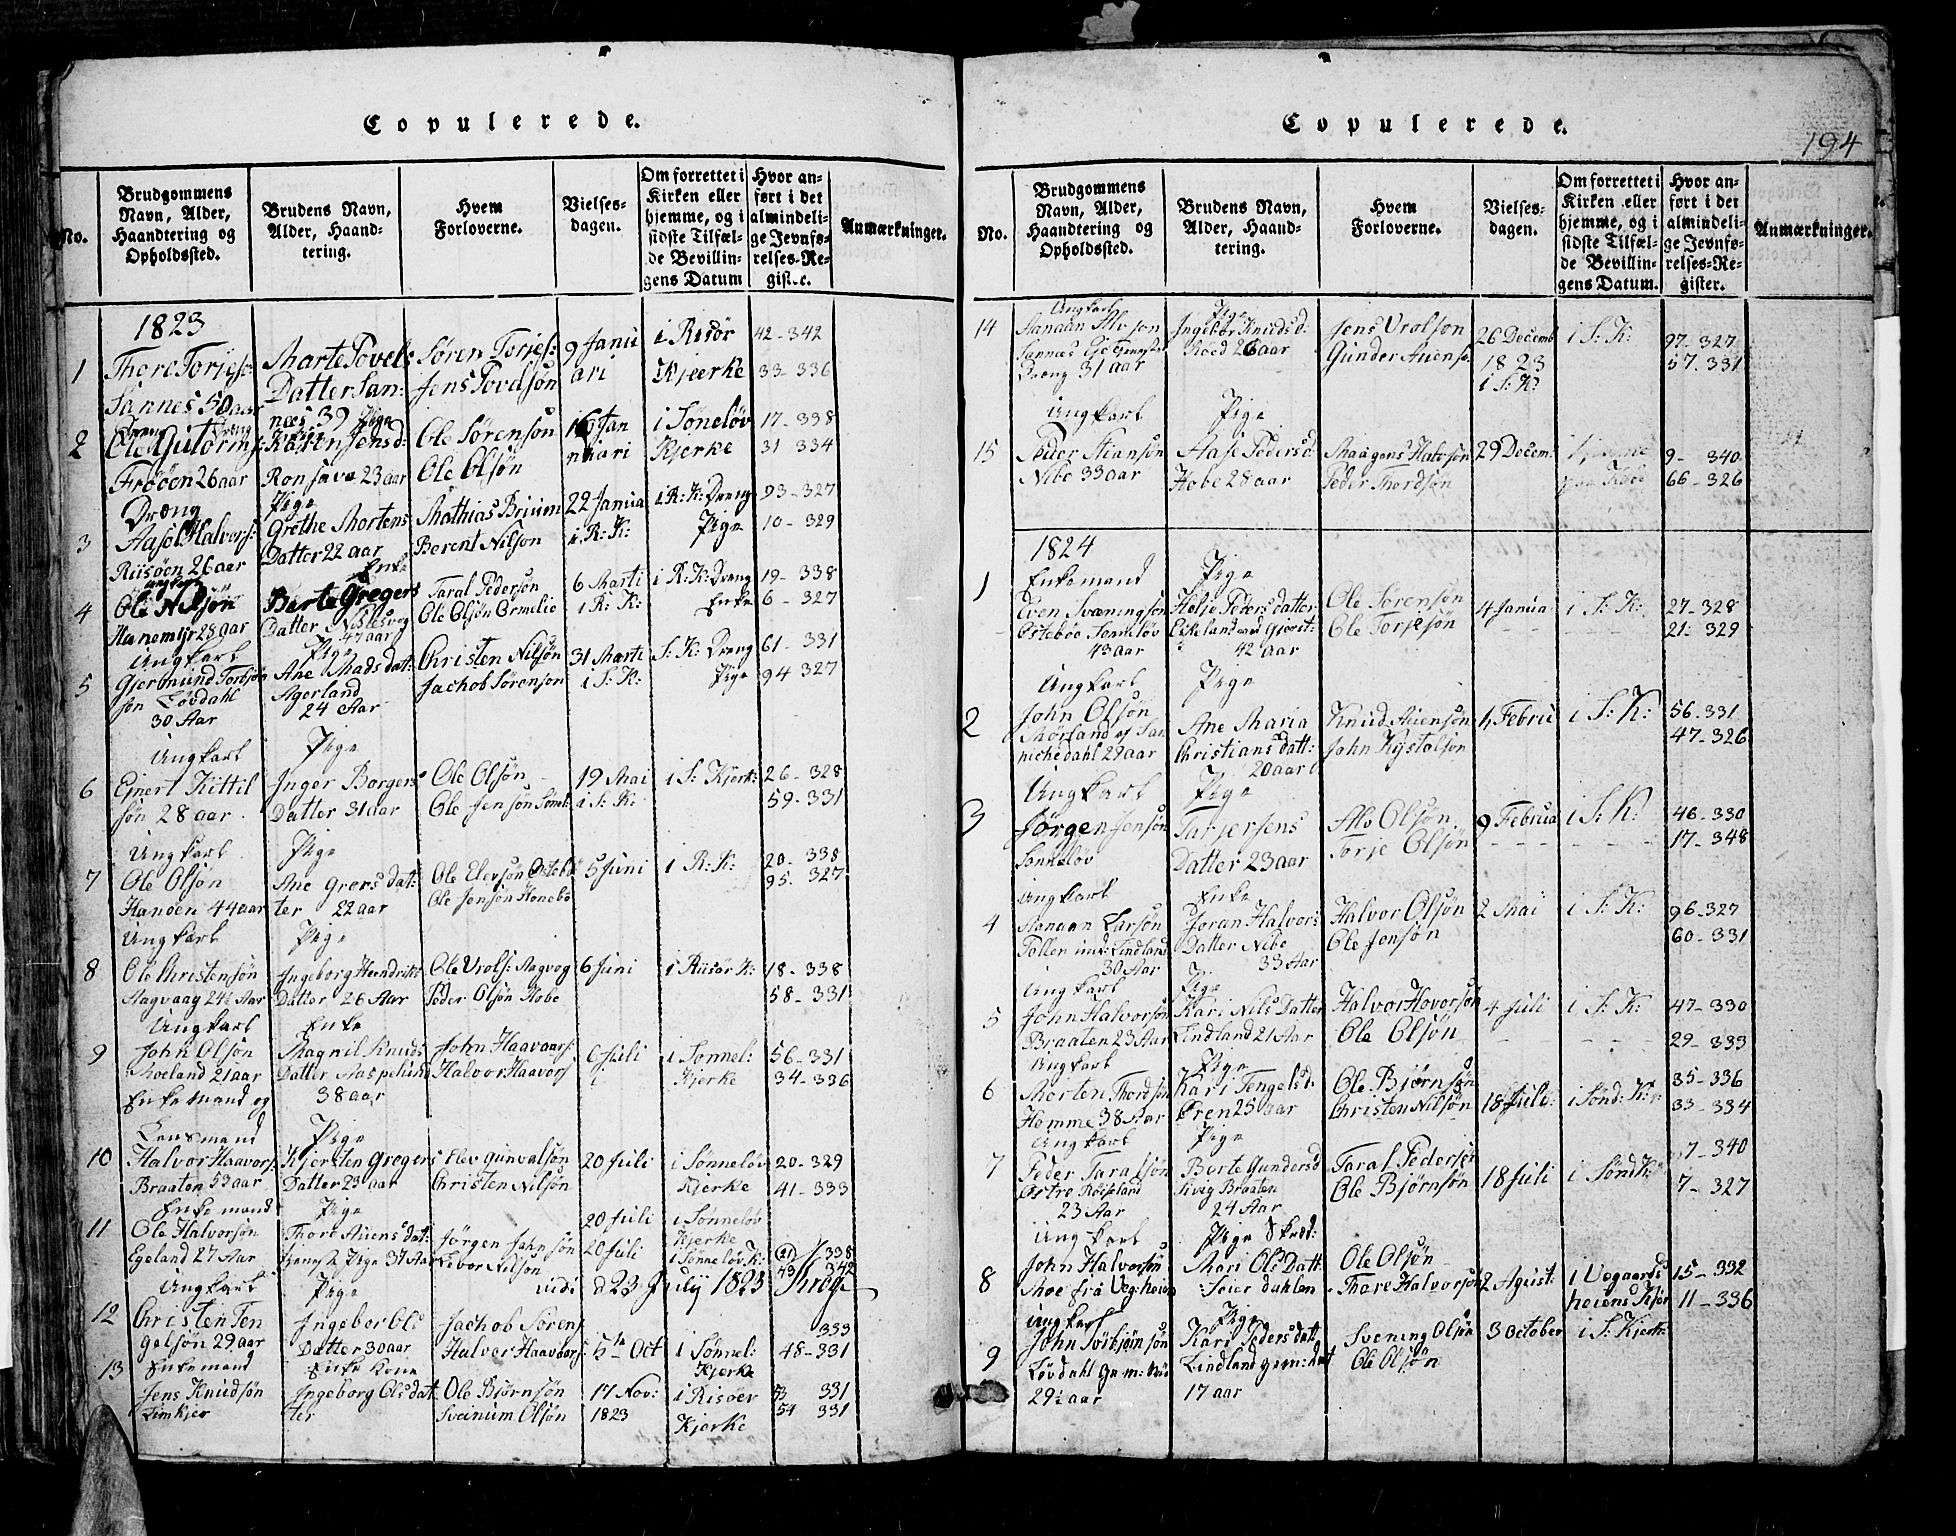 Copulerede.
No.
Brudgommens Navn, Alder, Haandtering og Opholdssted.
Brudens Navn, Alder, Haandtering.
Hvem Forloverne.
Vielsesdagen.
Om forrettet i Kirken eller hjemme, og i sidste Tilfælde Bevillingens Datum
Hvor anført i det almindelige Jevnførelses-Register.
Anmærkninger.
1823
1
Thore Torjes:
Sannes 50 aar
Marte Povels
Datter San:
nes 39 Pige
Søren Torjes:
Jens Povelsøn
9 Janu
ari
i Risør
Kjerke
42-342
33-336
2
Ole Guttorms:
Frøöen 26 aar
Dræng
Karen Jensd:
23 aar
Pige
Ole Sørensøn
Ole Olsøn
16 Jan
nuari
i Søneløv
Kjerke
17-338
31 334
3
Halvors:
Riisøen 26 aar
Grethe Mortens
Datter 22 aar
Mathias Bruun
Berent Nilson
22 Janua
i R: K:
i R: K: Dreng
Pige
93-327
10-329
4
Ole Nilsøn
28 aar
Enke
Berte Gregers
Datter
47 aar
Taral Pederson
Ole Olsøn
6 Marti
i R: K:
i R: K: Dreng
Enke
19-338
6-327
5
Ungkarl
Gjermund Torbjøn
søn Løvdahl
30 Aar
Pige
Ane Mads dat:
Agerland
24 Aar
Christen Nilsøn
Jachob Sørenson
31 Marti
i S: K:
S: K: Dreng
Pige
61-331
94 327
6
Ungkarl
Ejnert Kittil
søn 28 aar
Pige
Inger Borgers
Datter 31 aar
Ole Olsøn
Ole Jensøn
19 Mai
i S: K:
i S: Kjerk:
26-328
59-331
7
Ungkarl
Ole Olsøn
Hanøen 44 aar
Pige
Ane Grers dat:
ter 22 aar
Ole Elevsøn
Ole Jensøn
5 Juni
i R: K:
20-338
95-327
8
Ungkarl
Ole Christensøn
Aagvaag 24½ Aar
Pige
Ingeborg Hendriks
Datter 26 Aar
Ole Urols: Aagvog
Peder Olsøn Hobe
6 Juni
i Riisør K:
18-338
58-331
9
Ungkarl
John Olsøn
Moeland 21 aar
Enke
Magnil Knuds
Datter Aaspelund
38 aar
John Haavaars:
Halvor Haavors
6 Juli
i Sønnel:
Kjerke
56-331
34-336
10
Enkemand og
Lensmand
Halvor Haavors:
Braaten 53 aar
Pige
Kjersten Gregers
Datter 23 aar
Elev Gunvalsøn
Christen Nilsøn
20 Juli
i Sønneløv
Kjerke
20-329
41-333
11
Enkemand
Ole Halvorsøn
Egeland 27 Aar
Pige
Thore Auens dat:
Pige 37 Aar
Jørgen Jahnsøn
Nilsøn
20 Juli
20 Juli
i Sønneløv
Kjerke
i Sønneløv K:
338
43 342
vidi d 23 July 1823
12
Ungkarl
Christen Ten
gelsøn 29 aar
Pige
Ingeber Ols
Datter 30 aar
Jachob Sørens
Halvor Haavors:
5te Oct
i Sønnel:
Kjerke
333
48-331
13
Enkemand
Jens Knudsøn
Limkjer
Enke Kone
Ingeborg Ols dat
ter
Ole Bjørnsøn
Sveinum Olsøn
17 Nov:
1823
i Risøer
Kjerke
53 331
54 331
Copulerede.
194
No.
Brudgommens Navn, Alder, Haandtering og Opholdssted.
Brudens Navn, Alder, Haandtering.
Hvem Forloverne.
Vielsesdagen.
Om forrettet i Kirken eller hjemme, og i sidste Tilfælde Bevillingens Datum.
Hvor anført i det almindelige Jevnførelses-Register.
Anmærkninger.
14
Ungkarl
Sannes
Dreng 31 aar
Pige
Ingebor Knudsd:
Røed 26 aar
Jens Urolson
Gunder Auensø
26 Decemb
1823
i S: K:
i S: K:
97-327
57-331
15
Ungkarl
Peder Stiansøn
Nibe 33 aar
Pige
Aase Pedersd
Hobe 28 aar
Maagens Halvsøn
Peder Thordsøn
29 Decem:
9-340
66-326
1824
1
Enkemand
Even Svæningsøn
Østebøe Sønneløv
43 aar
Pige
Helje Peders datter
42 aar
Ole Sørensøn
Ole Torjesøn
4 Janua
i S: K:
27-328
21-329
2
Ungkarl
John Olsøn
29 aar
Pige
Ane Maria
Christians datt:
20 aar
Knud Auensøn
John Kystolsøn
4 Febru
i S: K:
56-331
47-326
3
Ungkarl
Jørgen Jensøn
Sønneløv
Pige
Tarjersens
Datter 23 aar
Alv Olsøn
Torje Olsøn
9 Februa
i S: K:
46-330
17-348
4
Ungkarl
Manaan Larsøn
30 Aar
Enke
Joran Halvors:
Datter Nibe
33 Aar
Halvor Olsøn
Ole Jensøn
2 Mai
i S: K:
96-327
60-331
5
Ungkarl
John Halvorsøn
Braaten 23 Aar
Pige
Kari Nils Datter
Lindland 21 Aar
Halvor Hovorsøn
Ole Olsøn
4 Juli
i S: K:
47-330
29-333
6
Ungkarl
Morten Thordsøn
Homme 38 Aar
Pige
Kari Tengelsd:
Øren 25 aar
Ole Bjørnsøn
Christen Nilsøn
18 Juli:
i Sønd: K:r
35-336
33-334
7
Ungkarl
Peder Taralsøn
Østre Røiseland
23 Aar
Pige
Berte Gundersd
Sivig Braaten
24 Aar
Taral Pedersøn
Ole Bjørnsøn
18 Juli
i Sønd K:
7-340
7-327
8
Ungkarl
John Halvorsøn
Moe frå Veg:heien
Pige Skræd:
Mari Ols Datt
Seier dahlen
Ole Olsøn
Thore Halvorsøn
2 Agust:
i Vegaards
heiens Kjer
15-332
11-336
9
Ungkarl
John Torbjønsøn
Løvdahl
29½ aar
Pige
Kari Peders datt
Lindland
17 aar
Svening Olsøn
Ole Olsøn
3 October
i S: Kjerk: